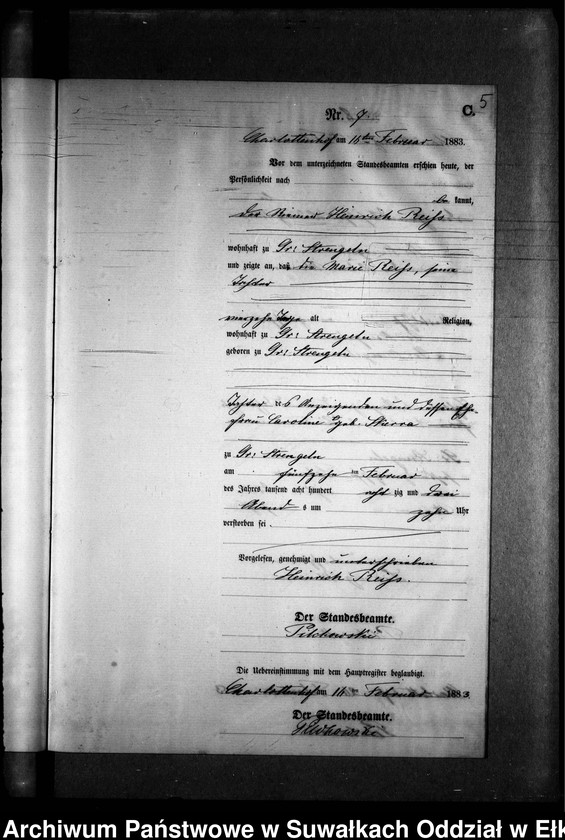 5
Nr. 7.
C.
Charlottenhof am 16ten Februar 1883.
Vor dem unterzeichneten Standesbeamten erschien heute, der
Persönlichkeit nach
be kannt,
der Heinrich Reiss.
wohnhaft zu Gr: Strengeln
und zeigte an, daß die Marie Reiss, seine
Tochter
vierzehn Tage alt Religion,
wohnhaft zu Gr: Strengeln
geboren zu Gr: Strengeln
Tochter des Anzeigenden und dessen Ehe-
frau Caroline geb.
zu Gr: Strengeln
am fünfzehn ten Februar
des Jahres tausend acht hundert acht zig und drei
Abend s um zehn Uhr
verstorben sei.
Vorgelesen, genehmigt und unterschrieben
Heinrich Reiss.
Der Standesbeamte.
Pilchowski
Die Uebereinstimmung mit dem Hauptregister beglaubigt.
Charlottenhof am 16ten Februar 1883
Der Standesbeamte.
Pilchowski
Archiwum Państwowe w Suwałkach Oddział w Ełk